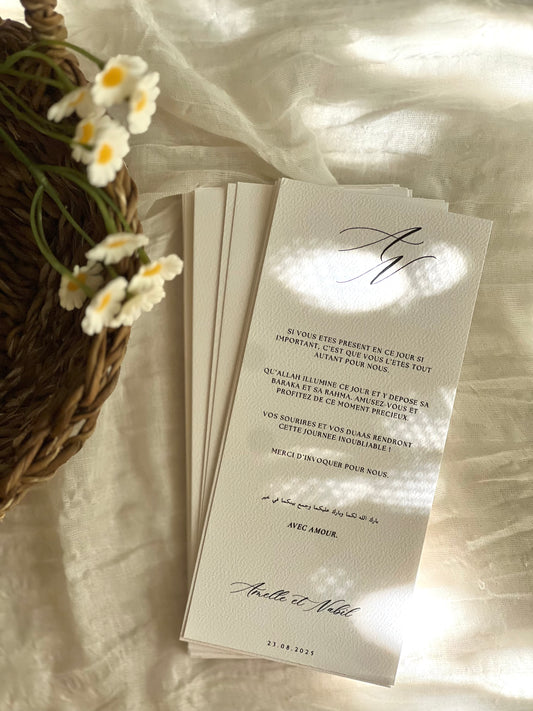 A
N
SI VOUS ETES PRESENT EN CE JOUR SI
IMPORTANT, C'EST QUE VOUS L'ETES TOUT
AUTANT POUR NOUS.
QU'ALLAH ILLUMINE CE JOUR ET Y DEPOSE SA
BARAKA ET SA RAHMA. AMUSEZ-VOUS ET
PROFITEZ DE CE MOMENT PRECIEUX.
VOS SOURIRES ET VOS DUAAS RENDRONT
CETTE JOURNEE INOUBLIABLE !
MERCI D'INVOQUER POUR NOUS.
بارك الله لكما وبارك عليكما وجمع بينكما في خير
AVEC AMOUR.
Amelle et Nabil
23.08.2025